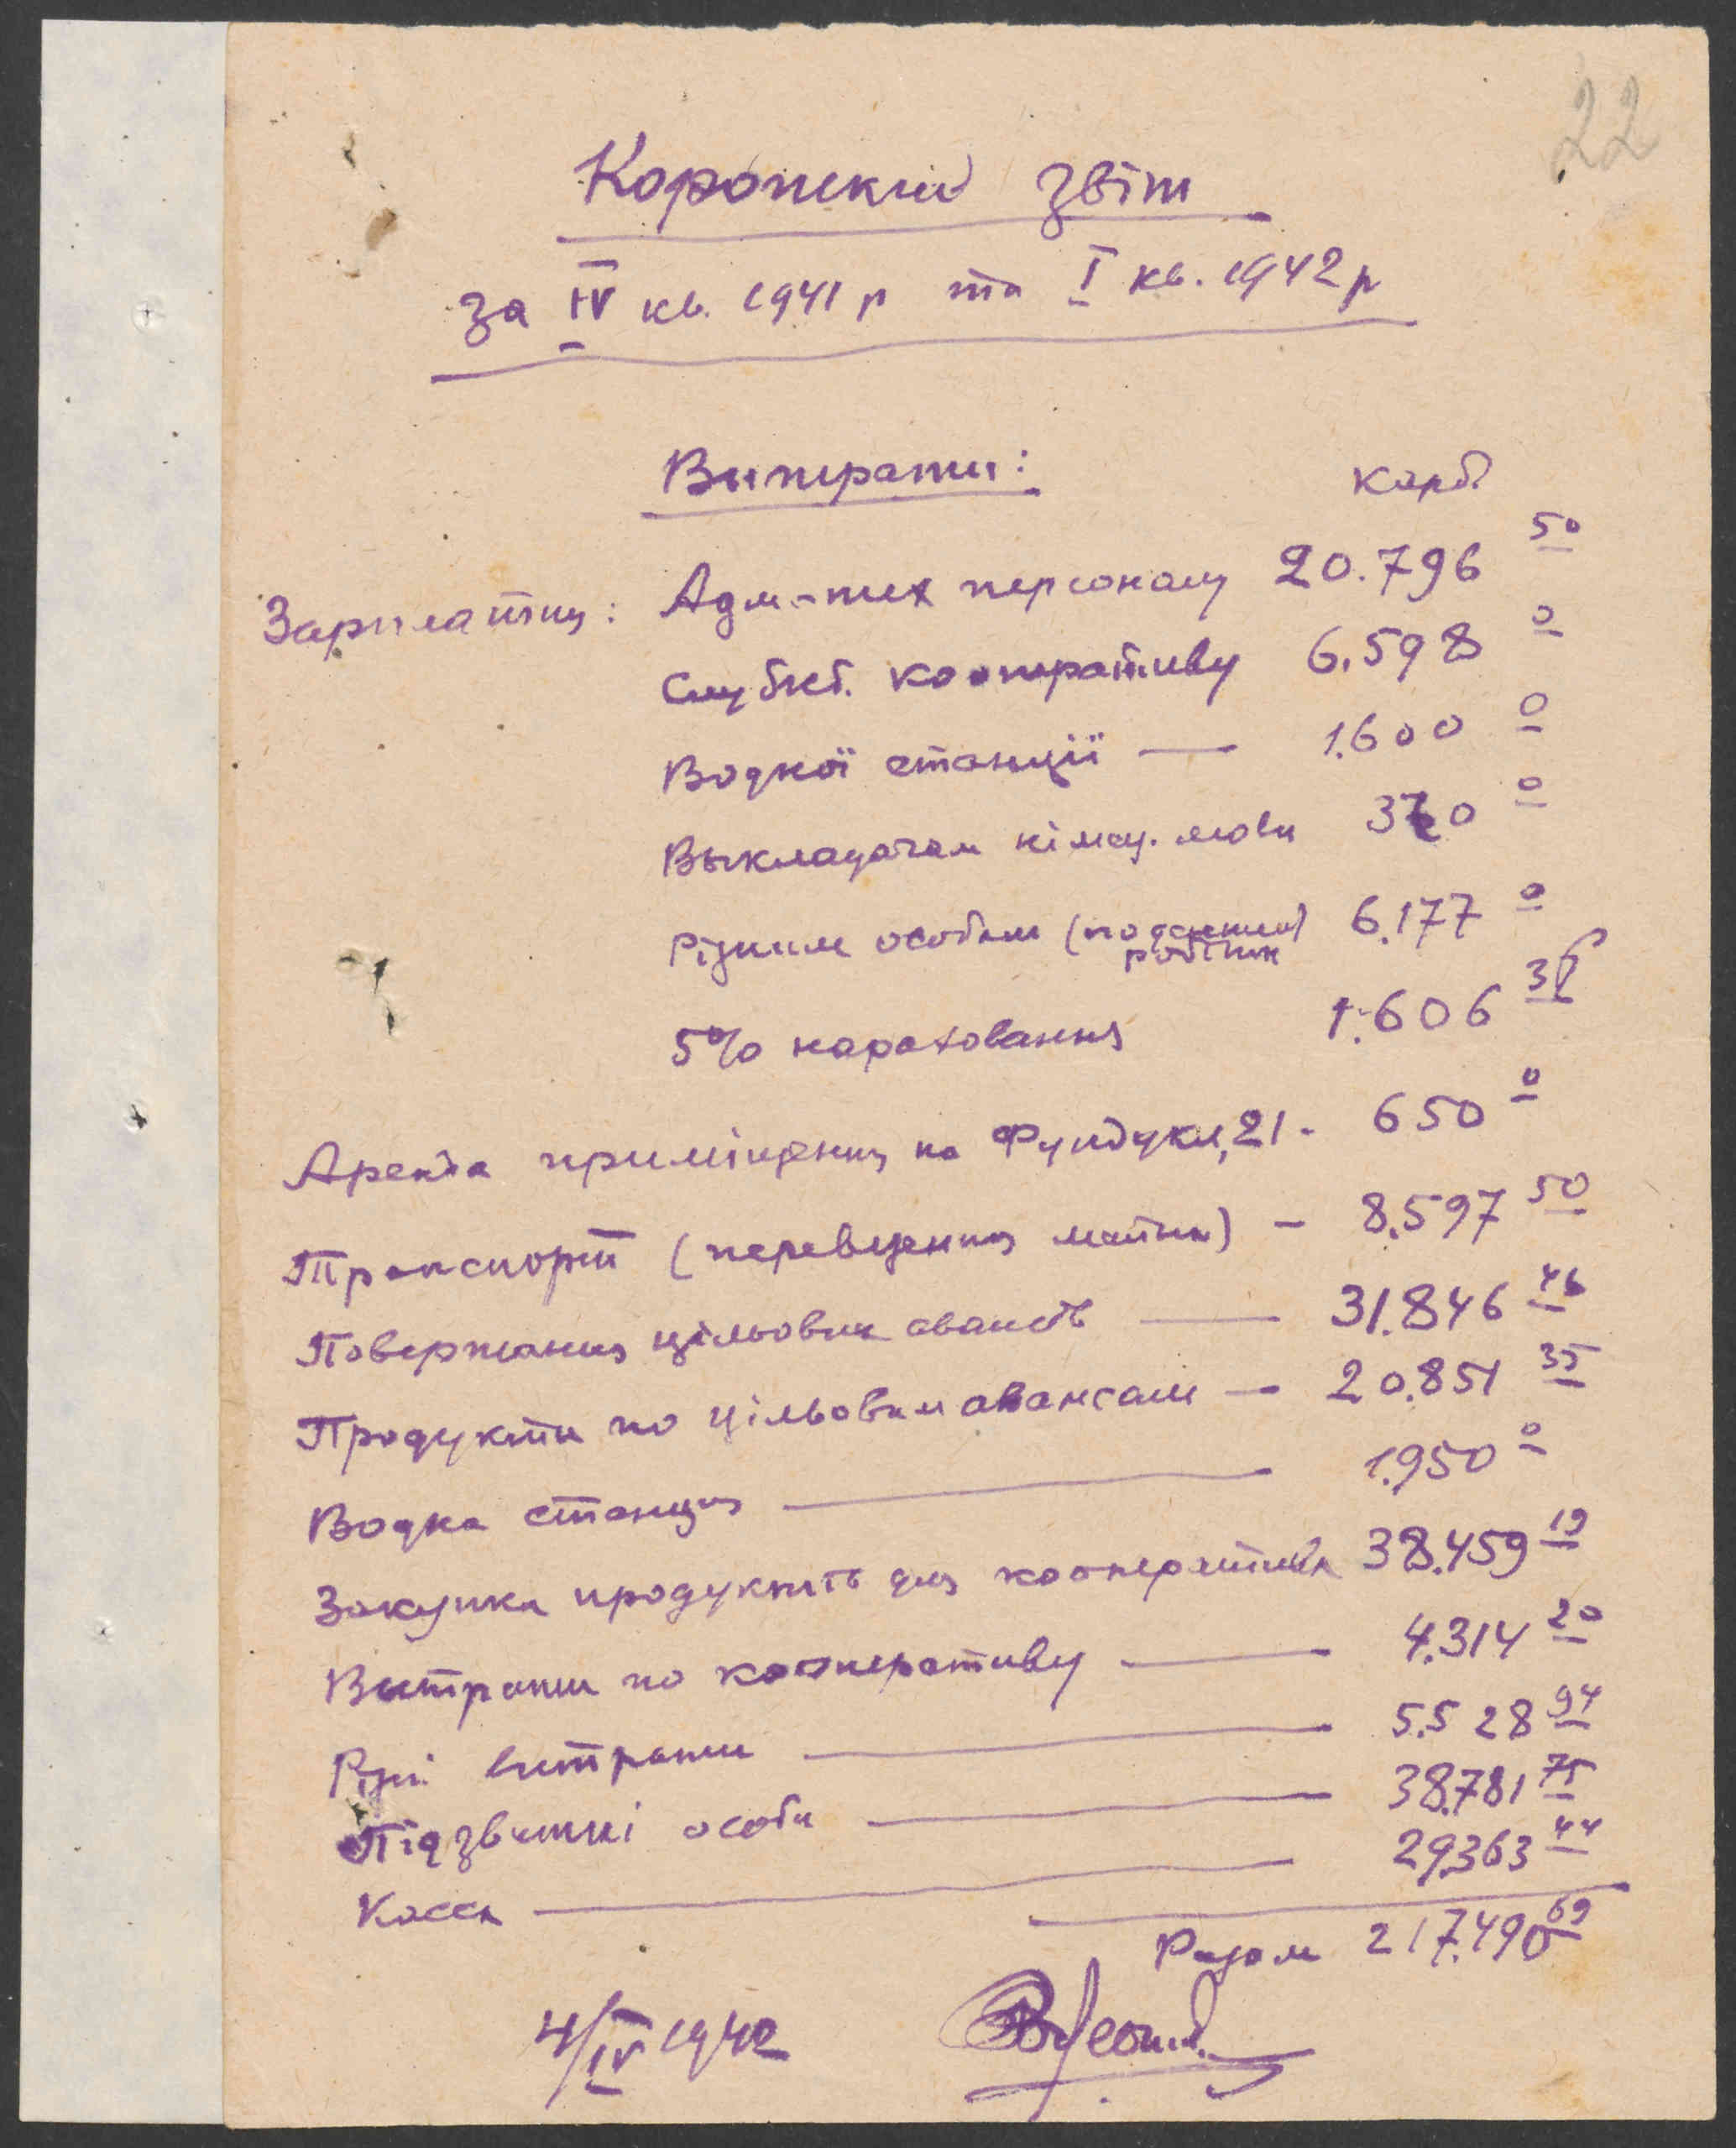 22
Короткий звіт
за IV кв. 1941 р та I кв. 1942 р
Витрати: карб.
Зарплатня: Адм-тех персоналу 20.796 50
Службов. кооперативу 6.598 0
Водної станції — 1.600 0
Выкладачам німец. мови 0
Різним особам (поденним робітник) 6.177 0
5% нараховання 1.606 36
Аренда приміщення на Фундукл, 21 - 650 0
Транспорт (перевезення майна) - 8.597 50
Повернення цільових авансів — 31.846 46
Продукти по цільовим авансам — 20.851 35
Водна станция — 1.950 0
Закупка продуктів для кооператива 38.459 19
Витрати по кооперативу — 4.314 20
Різні витрати — 5.528 94
Підзвітні особи — 38.781 75
Касса — 29.363 44
Разом 217.490 69
4/IV 1942